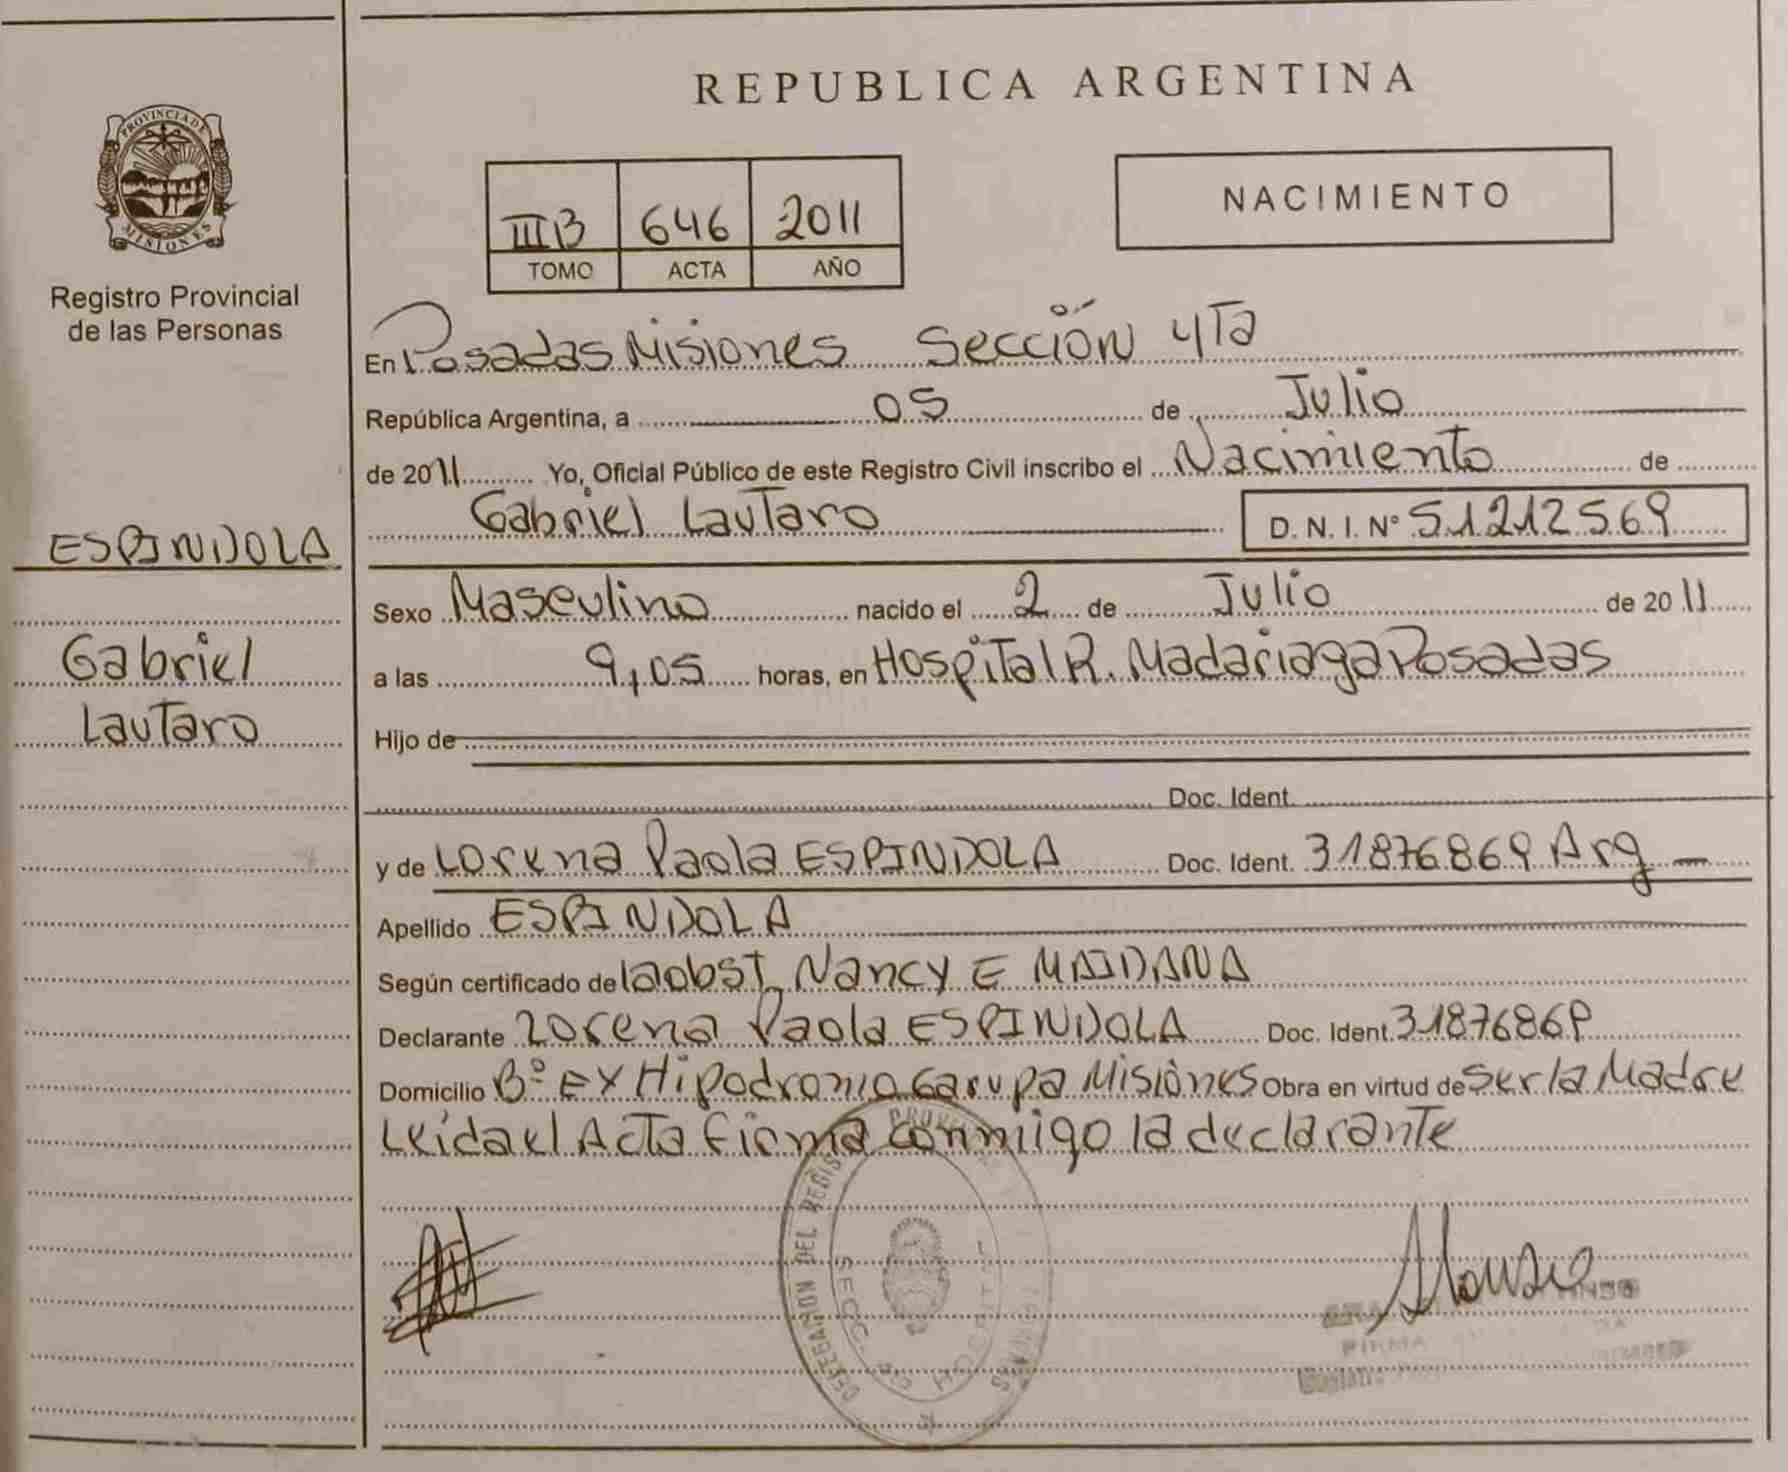 PROVINCIA DE
MISIONES
Registro Provincial
de las Personas
ESPINDOLA
Gabriel
Lautaro
REPUBLICA ARGENTINA
III B 646 2011
TOMO ACTA AÑO
NACIMIENTO
En Posadas Misiones Sección 4Ta
República Argentina, a 05 de Julio
de 2011 Yo, Oficial Público de este Registro Civil inscribo el Nacimiento de
Gabriel Lautaro D. N. I. Nº 51212569
Sexo Masculino nacido el 2 de Julio de 2011
a las 9,05 horas, en Hospital R. Madariaga Posadas
Hijo de
Doc. Ident.
y de Lorena Paola ESPINDOLA Doc. Ident. 31876869 Arg
Apellido ESPINDOLA
Según certificado de la obst. Nancy E MAIDANA
Declarante Lorena Paola ESPINDOLA Doc. Ident. 31876869
Domicilio Bº EX Hipodromo Garupa Misiones Obra en virtud de Ser la Madre
Leída el Acta Firma conmigo la declarante
DELEGACION DEL REGIS
SECC. HOSPITAL
FIRMA